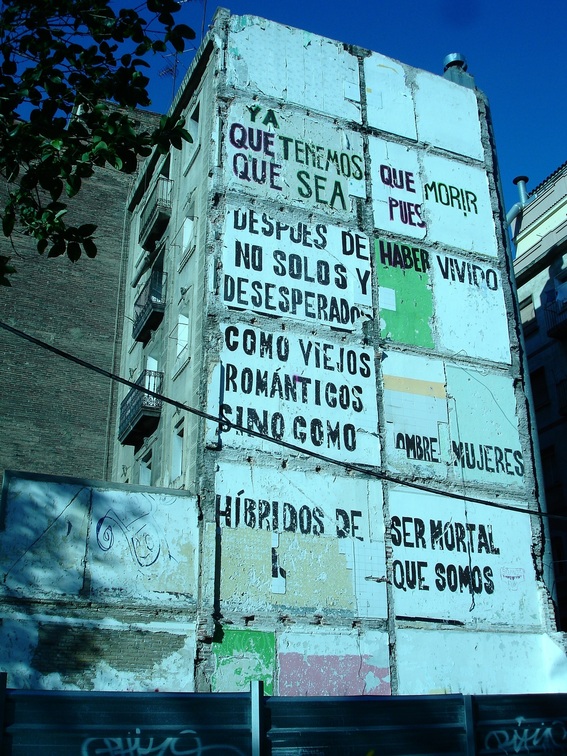 YA
QUE TENEMOS QUE MORIR
QUE SEA PUES
DESPUES DE HABER VIVIDO
NO SOLOS Y
DESESPERADOS
COMO VIEJOS
ROMÁNTICOS
SINO COMO OMBRE MUJERES
HÍBRIDOS DE SER MORTAL
QUE SOMOS